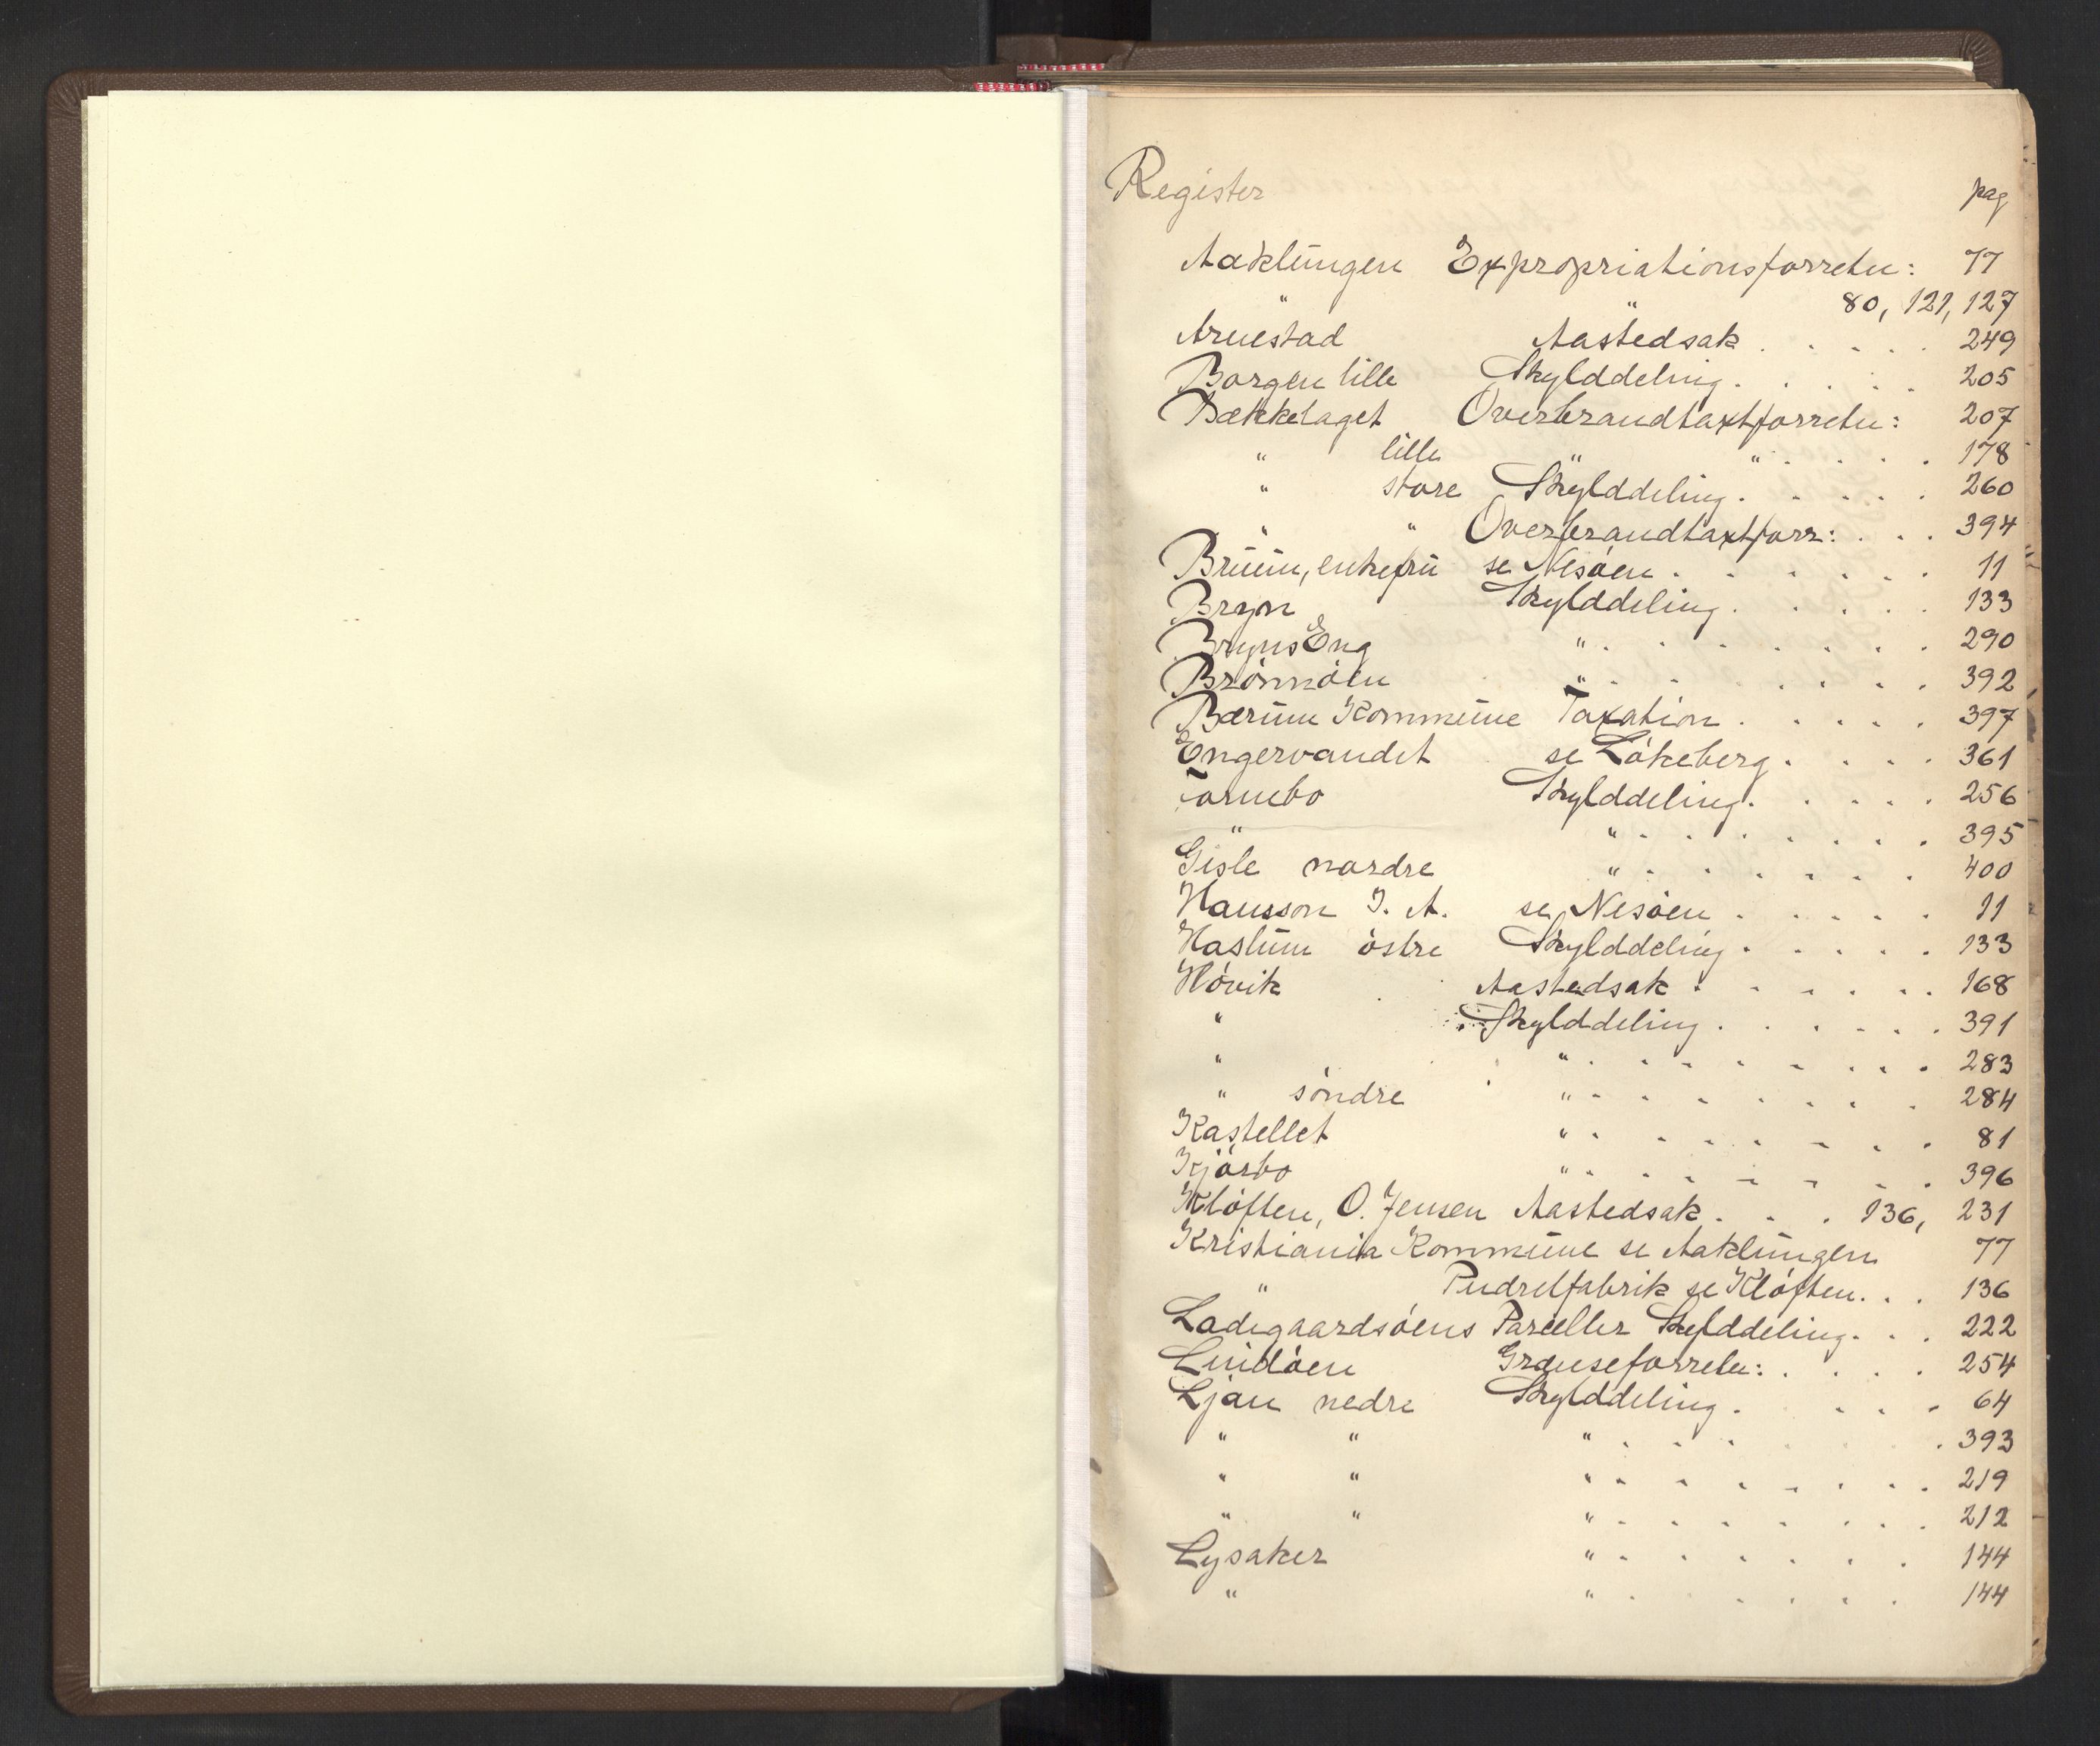 Register pag
Aaklungen Expropriationsforretn: 77
" " 80, 121, 127
Arnestad Aastedsak . . . . . 249
Borgen lille Skylddeling . . . . . 205
Bækkelaget Overbrandtaxtforretn: 207
" lille " " . . . . 178
" store Skylddeling . . . . . 260
" " Overbrandtaxtforr: . . . 394
Bruun, enkefru se Nesöen . . . . . . 11
Bryn Skylddeling . . . . . 133
Bryns Eng " . . . . . . . 290
Brönnöen " . . . . . . . 392
Bærum Kommune Taxation . . . . . 397
Engervandet se Lökeberg . . . . 361
Fornebo Skylddeling . . . . . 256
" " . . . . . . . 395
Gisle nordre " . . . . . . 400
Hansson I. A. se Nesöen . . . . . 11
Haslum östre Skylddeling . . . . . 133
Hövik Aastedsak . . . . . . 168
" Skylddeling . . . . . . 391
" " . . . . . . . . 283
" söndre " . . . . . . . 284
Kastellet " . . . . . . . 81
Kjörbo " . . . . . . . 396
Klöften, O. Jensen Aastedsak . . . 136, 231
Kristiania Kommune se Aaklungen 77
" Pudretfabrik se Klöften . . . 136
Ladegaardsöens Parceller Skylddeling . . . 222
Lindöen Grænseforretn: . . . . 254
Ljan nedre Skylddeling . . . . . 64
" " " . . . . 393
" " " . . . . . . . 219
" " " . . . . . . . 212
Lysaker " . . . . . . 144
" " . . . . . . 144